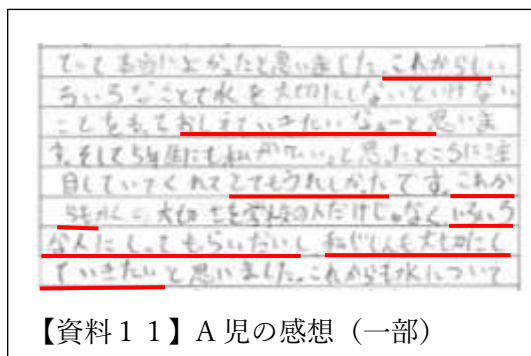 て本当によかったと思いました。これからもい
ろいろなことで水を大切にしないといけない
ことをもっておしえていきたいなぁーと思いま
す。そして5年生にも私が と思ったところに注
目していてくれてとてもうれしかったです。これか
らも 大切さを学校の人だけじゃなく、いろいろ
な人にしってもらいたいし、私じしんも大切にし
ていきたいと思いました。これからも水について
【資料11】A児の感想（一部）